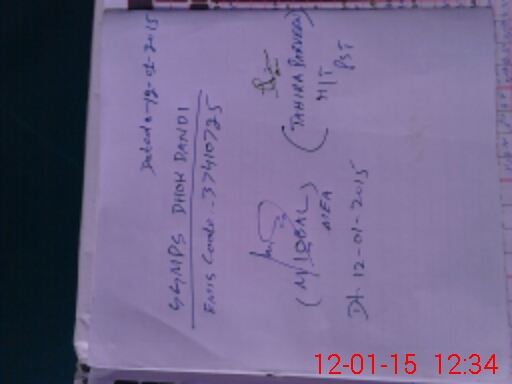 Dated: 12-01-2015
GGMPS DHOK DANDI
EMIS Code - 37410725
(M. IQBAL)
MEA
Dt. 12-01-2015
(TAHIRA PARVEEN)
H/T
PST
12-01-15 12:34